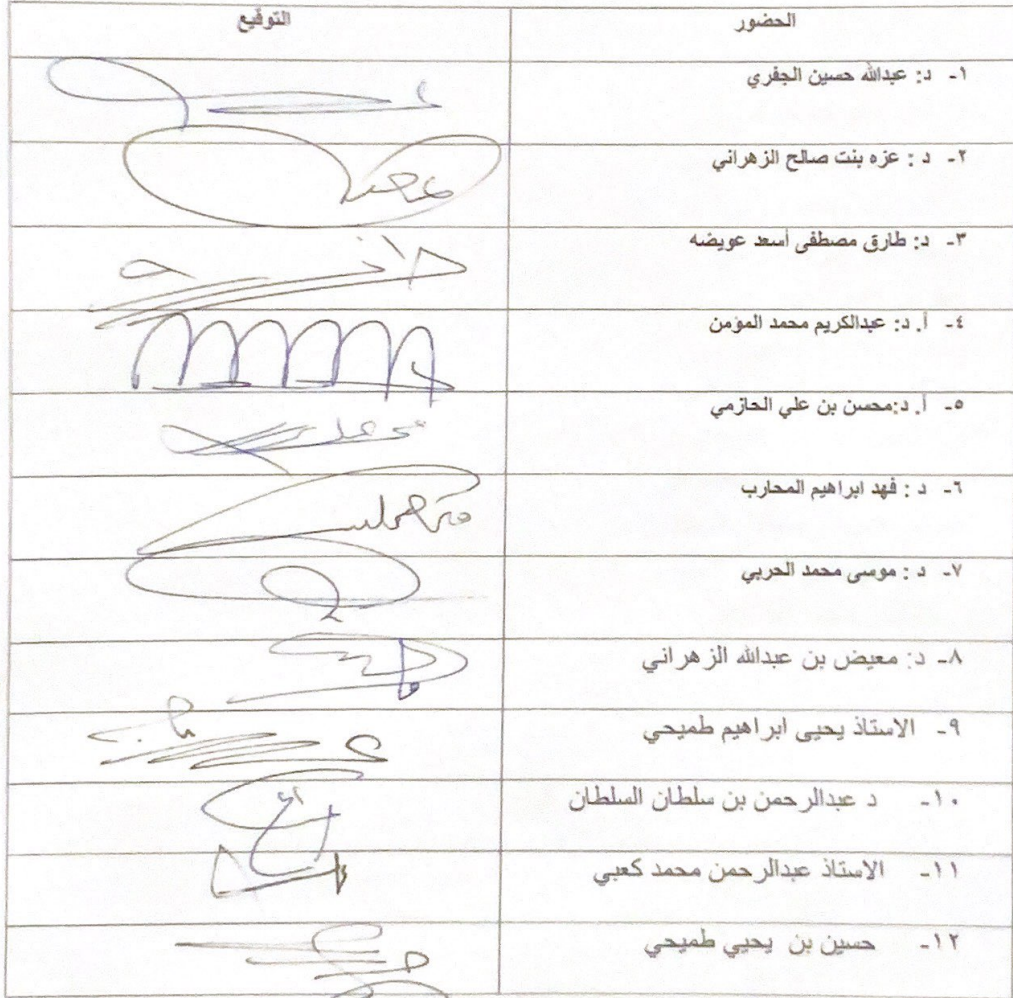 الحضور التوقيع
١- د: عبدالله حسين الجفري
٢- د : عزه بنت صالح الزهراني
٣- د: طارق مصطفى أسعد عويضه
٤- أ. د: عبدالكريم محمد المؤمن
٥- أ. د:محسن بن علي الحازمي
٦- د : فهد ابراهيم المحارب
٧- د : موسى محمد الحربي
٨- د: معيض بن عبدالله الزهراني
٩- الاستاذ يحيى ابراهيم طميحي
١٠- د عبدالرحمن بن سلطان السلطان
١١- الاستاذ عبدالرحمن محمد كعبي
١٢- حسين بن يحيي طميحي